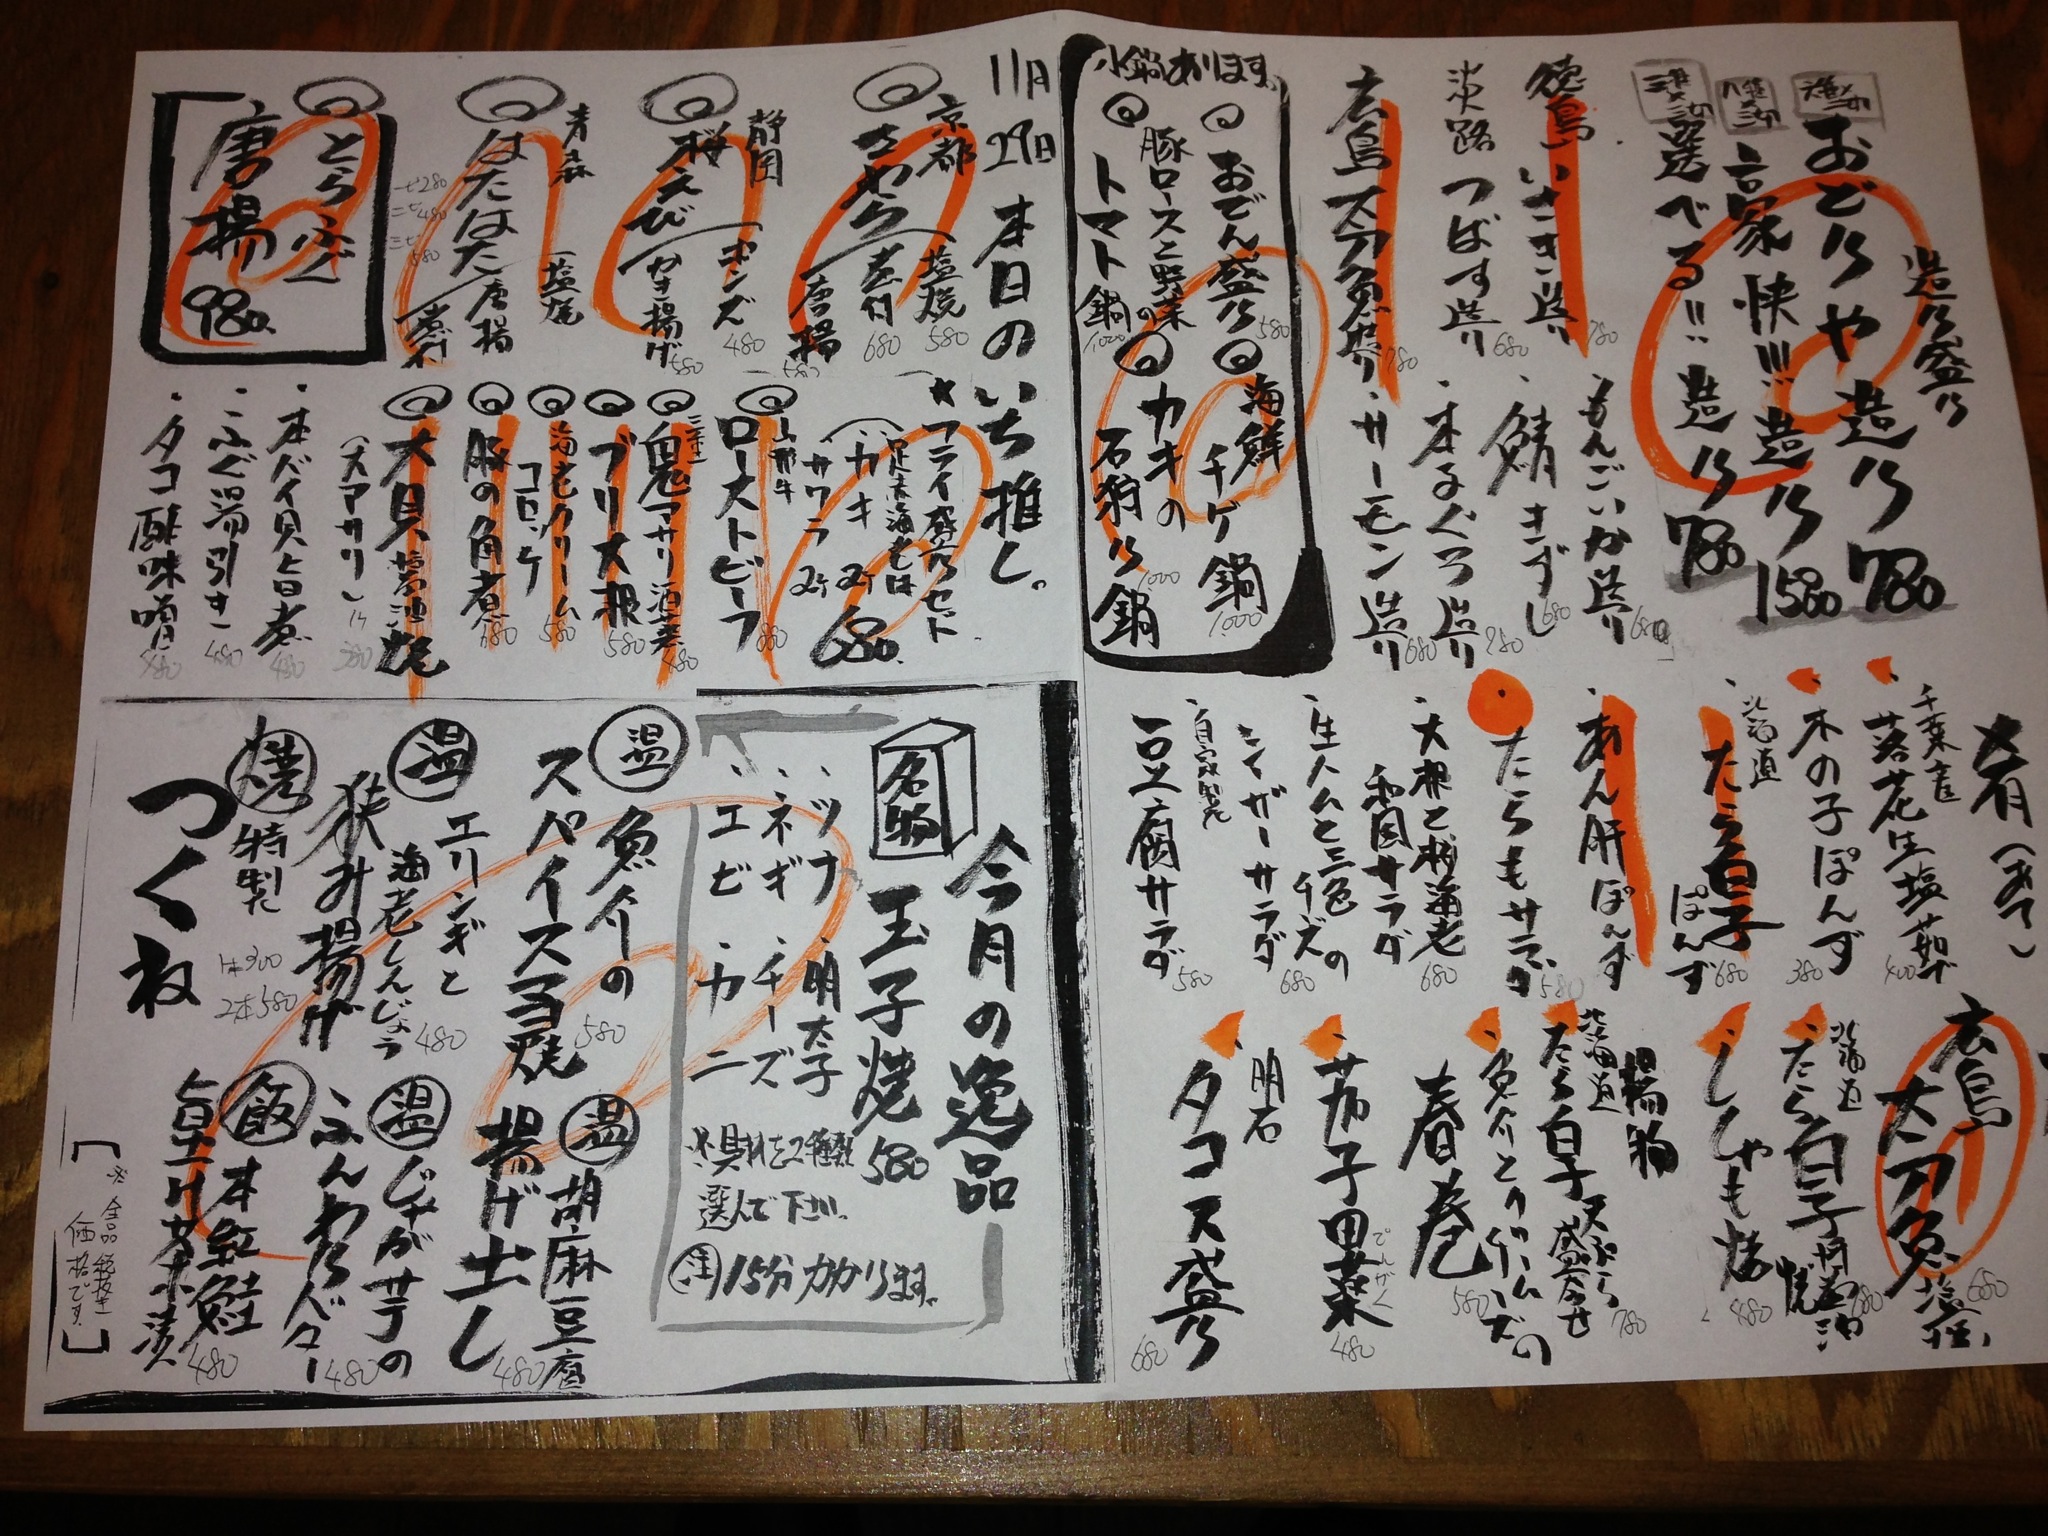 造り盛り
おどりや造り 780
豪快!!! 造り 1580
選べる!! 造り 780
徳島 いさき造り 780
淡路 つばす造り 680
広島 太刀魚造り 780
もんごいか造り 680
鯖きずし 680
本まぐろ造り 780
サーモン造り 680
小鍋あります。
おでん盛り 580
豚ロースと野菜の
トマト鍋 1,000
海鮮
チゲ鍋 1,000
カキの
石狩り鍋 1,000
11月29日 本日のいち推し。
京都
さわら
塩焼 580
煮付 680
唐揚 580
静岡
桜えび
ポンズ 480
かき揚げ 580
青森
はたはた
塩焼
唐揚
煮付
一ピ280
二ピ480
三ピ580
とらふぐ
唐揚 980
★フライ盛りセット
足赤海老
カキ 2ケ
サワラ 2ケ
680.
山形牛
ローストビーフ 880
三重
鬼アサリ酒蒸 480
ブリ大根 580
海老クリーム
コロッケ 580
豚の角煮 680
大貝醤油焼
(大アサリ) 1ケ 380
本バイ貝旨煮 480
ふぐ湯引き 480
タコ酢味噌 480
肴(あて)
千葉産
落花生塩茹で 400
木の子ぽんず 380
北海道
たら白子
ぽんず 680
あん肝ぽんず
たらもサラダ 580
大根と桜海老
和風サラダ 680
生ハムと三色
チーズの
シーザーサラダ 680
自家製
豆腐サラダ 580
広島
太刀魚塩焼 680
北海道
たら白子
680
ししゃも焼 480
揚物
北海道
たら白子天ぷら
盛合せ 780
魚介とクリームチーズの
春巻 580
茄子田楽 480
でんがく
明石
タコス盛り 680
今月の逸品
名物
玉子焼 580
・ツナ
・ネギ
・エビ
明太子
チーズ
カニ
※具材を2種類
選んで下さい。
注 15分かかります。
温 魚介の
スパイスマヨ焼 580
温 エリンギと
海老しんじょう
狭み揚げ 480
焼 特製
つくね
1本300
2本580
温 胡麻豆腐
揚げ出し 480
温 じゃがサラの
ふんわりバター 480
飯 本紅鮭
皇汁茶漬 480
※全品税抜き
価格です。